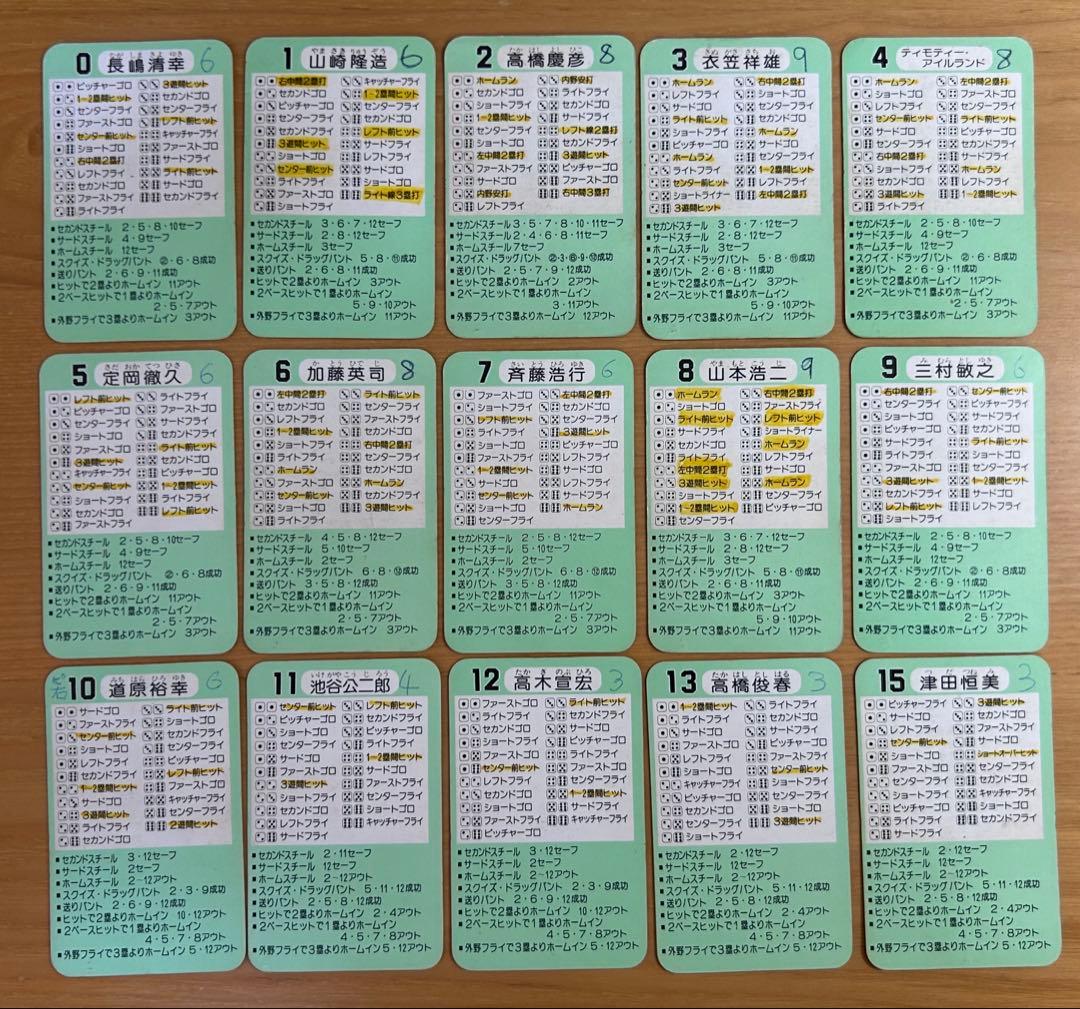 0 長嶋清幸 6
ながしまきよゆき
ピッチャーゴロ 3遊間ヒット
1-2塁間ヒット セカンドゴロ
センターフライ センターフライ
ファーストゴロ レフト前ヒット
センター前ヒット キャッチャーフライ
ショートゴロ ファーストゴロ
右中間2塁打 サードフライ
レフトフライ ライト前ヒット
セカンドゴロ サードゴロ
ショートフライ セカンドフライ
ライトフライ
■セカンドスチール 2・5・8・10セーフ
■サードスチール 4・9セーフ
■ホームスチール 12セーフ
■スクイズ・ドラッグバント ②・6・8成功
■送りバント 2・6・9・11成功
■ヒットで2塁よりホームイン 11アウト
■2ベースヒットで1塁よりホームイン
2・5・7アウト
■外野フライで3塁よりホームイン 3アウト
1 山崎隆造 6
やまさきりゅうぞう
右中間2塁打 キャッチャーフライ
セカンドゴロ 1-2塁間ヒット
ピッチャーゴロ センターフライ
センターフライ セカンドゴロ
セカンドフライ レフト前ヒット
3遊間ヒット サードフライ
ショートゴロ レフトフライ
センター前ヒット サードゴロ
ライトフライ ショートゴロ
ファーストゴロ ライト線3塁打
ショートフライ
■セカンドスチール 3・6・7・12セーフ
■サードスチール 2・8・12セーフ
■ホームスチール 3セーフ
■スクイズ・ドラッグバント 5・8・⑪成功
■送りバント 2・6・8・11成功
■ヒットで2塁よりホームイン 3アウト
■2ベースヒットで1塁よりホームイン
5・9・10アウト
■外野フライで3塁よりホームイン 11アウト
2 高橋慶彦 8
たかはしよしひこ
ホームラン 内野安打
サードゴロ ライトフライ
ショートフライ セカンドゴロ
1-2塁間ヒット サードフライ
センターフライ レフト線2塁打
ショートゴロ セカンドフライ
左中間2塁打 3遊間ヒット
ファーストフライ ピッチャーゴロ
サードゴロ ファーストゴロ
内野安打 右中間3塁打
レフトフライ
■セカンドスチール 3・5・7・8・10・11セーフ
■サードスチール 2・4・6・8・11セーフ
■ホームスチール 7セーフ
■スクイズ・ドラッグバント ②・3・⑥・9・⑫成功
■送りバント 2・5・7・9・12成功
■ヒットで2塁よりホームイン 2アウト
■2ベースヒットで1塁よりホームイン
3・11アウト
■外野フライで3塁よりホームイン 12アウト
3 衣笠祥雄 9
きぬがささちお
ホームラン 右中間2塁打
レフトフライ ショートゴロ
サードゴロ センターフライ
ライト前ヒット セカンドゴロ
ショートフライ ホームラン
ファーストゴロ サードフライ
ホームラン サードゴロ
ライトフライ 1-2塁間ヒット
センター前ヒット レフトフライ
ショートライナー 左中間2塁打
3遊間ヒット
■セカンドスチール 3・6・7・12セーフ
■サードスチール 2・8・12セーフ
■ホームスチール 3セーフ
■スクイズ・ドラッグバント 5・8・⑪成功
■送りバント 2・6・8・11成功
■ヒットで2塁よりホームイン 3アウト
■2ベースヒットで1塁よりホームイン
5・9・10アウト
■外野フライで3塁よりホームイン 11アウト
4 ティモティー・アイルランド 8
ホームラン 左中間2塁打
ショートゴロ ファーストゴロ
センター前ヒット ライト前ヒット
サードゴロ ピッチャーゴロ
セカンドゴロ ショートフライ
右中間2塁打 サードフライ
レフトフライ ホームラン
セカンドフライ レフトフライ
3遊間ヒット 1-2塁間ヒット
ライトフライ
■セカンドスチール 2・5・8・10セーフ
■サードスチール 4・9セーフ
■ホームスチール 12セーフ
■スクイズ・ドラッグバント ②・6・8成功
■送りバント 2・6・9・11成功
■ヒットで2塁よりホームイン 11アウト
■2ベースヒットで1塁よりホームイン
2・5・7アウト
■外野フライで3塁よりホームイン 3アウト
5 定岡徹久 6
さだおかてつひさ
レフト前ヒット ライトフライ
ピッチャーゴロ ファーストゴロ
センターフライ サードフライ
ショートゴロ セカンドフライ
ファーストゴロ ライト前ヒット
3遊間ヒット サードゴロ
キャッチャーフライ ピッチャーゴロ
センター前ヒット 1-2塁間ヒット
ショートフライ ライトフライ
セカンドゴロ レフト前ヒット
ファーストフライ
■セカンドスチール 2・5・8・10セーフ
■サードスチール 4・9セーフ
■ホームスチール 12セーフ
■スクイズ・ドラッグバント ②・6・8成功
■送りバント 2・6・9・11成功
■ヒットで2塁よりホームイン 11アウト
■2ベースヒットで1塁よりホームイン
2・5・7アウト
■外野フライで3塁よりホームイン 3アウト
6 加藤英司 8
かとうひでじ
左中間2塁打 ライト前ヒット
セカンドゴロ センターフライ
レフトフライ ファーストフライ
1-2塁間ヒット サードゴロ
ショートフライ 右中間2塁打
ファーストゴロ セカンドゴロ
ホームラン レフトフライ
サードフライ ホームラン
センター前ヒット ショートゴロ
ピッチャーゴロ 3遊間ヒット
ライトフライ
■セカンドスチール 4・5・8・12セーフ
■サードスチール 5・10セーフ
■ホームスチール 2セーフ
■スクイズ・ドラッグバント 6・8・⑫成功
■送りバント 3・5・8・12成功
■ヒットで2塁よりホームイン 11アウト
■2ベースヒットで1塁よりホームイン
2・5・7アウト
■外野フライで3塁よりホームイン 3アウト
7 斉藤浩行 6
さいとうひろゆき
ファーストゴロ 左中間2塁打
ショートフライ センターフライ
レフト前ヒット セカンドゴロ
ライトフライ 3遊間ヒット
ショートゴロ ピッチャーゴロ
サードフライ レフトフライ
1-2塁間ヒット サードゴロ
セカンドフライ ショートゴロ
センター前ヒット サードフライ
ピッチャーゴロ ホームラン
センターフライ
■セカンドスチール 2・5・8・12セーフ
■サードスチール 5・10セーフ
■ホームスチール 2セーフ
■スクイズ・ドラッグバント 6・8・⑫成功
■送りバント 3・5・8・12成功
■ヒットで2塁よりホームイン 11アウト
■2ベースヒットで1塁よりホームイン
2・5・7アウト
■外野フライで3塁よりホームイン 3アウト
8 山本浩二 9
やまもとこうじ
ホームラン 右中間2塁打
ショートゴロ ファーストフライ
ライト前ヒット レフト前ヒット
サードフライ ショートライナー
セカンドゴロ ホームラン
ライトフライ レフトフライ
左中間2塁打 サードゴロ
3遊間ヒット ホームラン
ショートフライ センターフライ
1-2塁間ヒット ピッチャーゴロ
センターフライ
■セカンドスチール 3・6・7・12セーフ
■サードスチール 2・8・12セーフ
■ホームスチール 3セーフ
■スクイズ・ドラッグバント 5・8・⑪成功
■送りバント 2・6・8・11成功
■ヒットで2塁よりホームイン 3アウト
■2ベースヒットで1塁よりホームイン
5・9・10アウト
■外野フライで3塁よりホームイン 11アウト
9 三村敏之 6
みむらとしゆき
右中間2塁打 センター前ヒット
ショートゴロ サードゴロ
サードフライ セカンドフライ
ピッチャーゴロ ショートゴロ
セカンドゴロ ライト前ヒット
ライトフライ センターフライ
ファーストフライ サードゴロ
3遊間ヒット 1-2塁間ヒット
センターフライ ファーストゴロ
レフト前ヒット レフトフライ
ショートフライ
■セカンドスチール 2・5・8・10セーフ
■サードスチール 4・9セーフ
■ホームスチール 12セーフ
■スクイズ・ドラッグバント ②・6・8成功
■送りバント 2・6・9・11成功
■ヒットで2塁よりホームイン 11アウト
■2ベースヒットで1塁よりホームイン
2・5・7アウト
■外野フライで3塁よりホームイン 3アウト
右 10 道原裕幸 6
みちはらひろゆき
サードゴロ ライト前ヒット
ファーストフライ ショートゴロ
センター前ヒット セカンドフライ
ショートゴロ ピッチャーゴロ
レフトフライ サードフライ
セカンドフライ レフト前ヒット
1-2塁間ヒット ファーストゴロ
サードゴロ キャッチャーフライ
3遊間ヒット センターフライ
ライトフライ 2遊間ヒット
セカンドゴロ
■セカンドスチール 3・12セーフ
■サードスチール 2セーフ
■ホームスチール 2~12アウト
■スクイズ・ドラッグバント 2・3・9成功
■送りバント 2・6・9・12成功
■ヒットで2塁よりホームイン 10・12アウト
■2ベースヒットで1塁よりホームイン
4・5・7・8アウト
■外野フライで3塁よりホームイン 5・12アウト
11 池谷公二郎 4
いけがやこうじろう
センター前ヒット レフト前ヒット
ピッチャーゴロ セカンドフライ
センターフライ ピッチャーゴロ
ショートゴロ ライトフライ
サードフライ 1-2塁間ヒット
ファーストゴロ サードゴロ
3遊間ヒット ファーストフライ
ショートフライ センターフライ
セカンドゴロ ショートゴロ
レフトフライ セカンドゴロ
サードフライ
■セカンドスチール 2・11セーフ
■サードスチール 12セーフ
■ホームスチール 2~12アウト
■スクイズ・ドラッグバント 5・11・12成功
■送りバント 2・5・8・12成功
■ヒットで2塁よりホームイン 2・4アウト
■2ベースヒットで1塁よりホームイン
4・5・7・8アウト
■外野フライで3塁よりホームイン 5・12アウト
12 高木宣宏 3
たかぎのぶひろ
ファーストゴロ ライト前ヒット
ライトフライ ショートゴロ
セカンドゴロ サードフライ
ショートフライ ピッチャーゴロ
サードゴロ レフトフライ
センター前ヒット ファーストゴロ
レフトフライ センターフライ
セカンドゴロ 1-2塁間ヒット
ショートゴロ キャッチャーフライ
ピッチャーゴロ
■セカンドスチール 3・12セーフ
■サードスチール 2セーフ
■ホームスチール 2~12アウト
■スクイズ・ドラッグバント 2・3・9成功
■送りバント 2・6・9・12成功
■ヒットで2塁よりホームイン 10・12アウト
■2ベースヒットで1塁よりホームイン
4・5・7・8アウト
■外野フライで3塁よりホームイン 5・12アウト
13 高橋俊春 3
たかはしとしはる
1-2塁間ヒット レフトフライ
ライトフライ セカンドゴロ
サードゴロ ショートゴロ
ファーストゴロ ピッチャーゴロ
サードフライ センター前ヒット
キャッチャーフライ ファーストフライ
ピッチャーゴロ センターフライ
ショートゴロ サードゴロ
センターフライ 3遊間ヒット
ショートフライ
■セカンドスチール 2・12セーフ
■サードスチール 12セーフ
■ホームスチール 2~12アウト
■スクイズ・ドラッグバント 5・11・12成功
■送りバント 2・5・8・12成功
■ヒットで2塁よりホームイン 2・4アウト
■2ベースヒットで1塁よりホームイン
4・5・7・8アウト
■外野フライで3塁よりホームイン 5・12アウト
15 津田恒美 3
つだつねみ
ピッチャーフライ 3遊間ヒット
サードゴロ セカンドゴロ
ライトフライ センターフライ
センター前ヒット サードゴロ
ショートゴロ ショートオーバーヒット
ファーストゴロ セカンドフライ
レフトフライ ファーストフライ
セカンドゴロ キャッチャーフライ
ショートフライ ピッチャーゴロ
ショートゴロ セカンドフライ
サードフライ
■セカンドスチール 2・11セーフ
■サードスチール 12セーフ
■ホームスチール 2~12アウト
■スクイズ・ドラッグバント 5・11・12成功
■送りバント 2・5・8・12成功
■ヒットで2塁よりホームイン 2・4アウト
■2ベースヒットで1塁よりホームイン
4・5・7・8アウト
■外野フライで3塁よりホームイン 5・12アウト